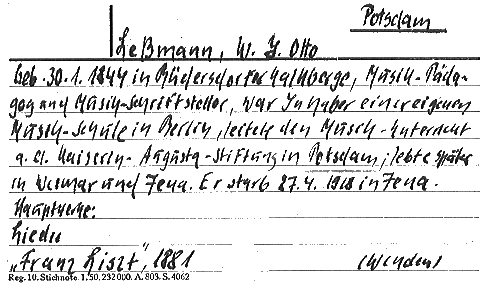 Potsdam
Leßmann, W. J. Otto
Geb. 30.1.1844 in Rüdersdorfer Kalkberge, Musik-Päda-
gog und Musik-Schriftsteller, war Inhaber einer eigenen
Musik-Schule in Berlin, leitete den Musik-Unterricht
a. d. Kaiserin-Augusta-Stiftung in Potsdam, lebte später
in Weimar und Jena. Er starb 27.4.1918 in Jena.
Hauptwerke:
Lieder
„Franz Liszt", 1881 (Wenden)
Reg. 10. Stichnote. 1,50. 232000. A. 803. S. 4062